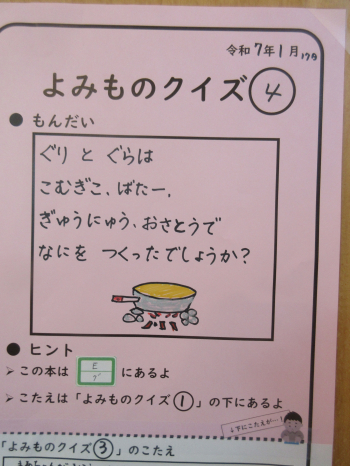 令和7年1月17日
よみものクイズ④
● もんだい
ぐりとぐらは
こむぎこ、ばたー、
ぎゅうにゅう、おさとうで
なにを つくったでしょうか？
● ヒント
➢ この本は E にあるよ
➢ こたえは「よみものクイズ①」の下にあるよ
↓下にこたえが…!
「よみものクイズ③」のこたえ